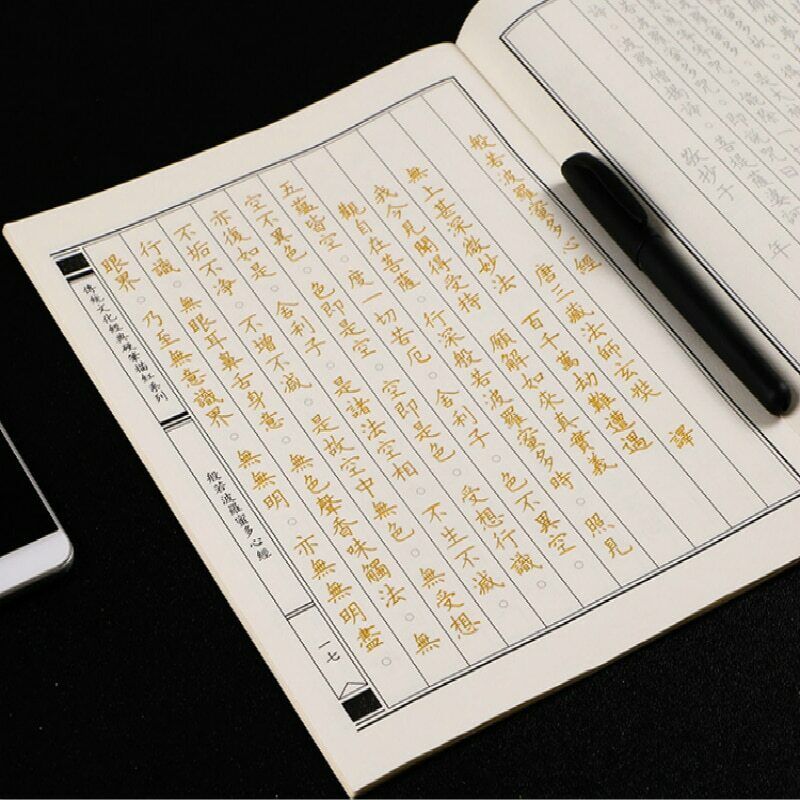 諦。波羅僧揭諦。菩提薩婆訶
敬抄于 年
般若波羅蜜多心經
唐三藏法師玄奘 譯
無上甚深微妙法 百千萬劫難遭遇
我今見聞得受持 願解如來真實義
觀自在菩薩。行深般若波羅蜜多時。照見
五蘊皆空。度一切苦厄。舍利子。色不異空。
空不異色。色即是空。空即是色。受想行識。
亦復如是。舍利子。是諸法空相。不生不滅。
不垢不净。不增不減。是故空中無色。無受想
行識。無眼耳鼻舌身意。無色聲香味觸法。無
眼界。乃至無意識界。無無明。亦無無明盡。
傳統文化經典硬筆描紅系列
般若波羅蜜多心經
一七